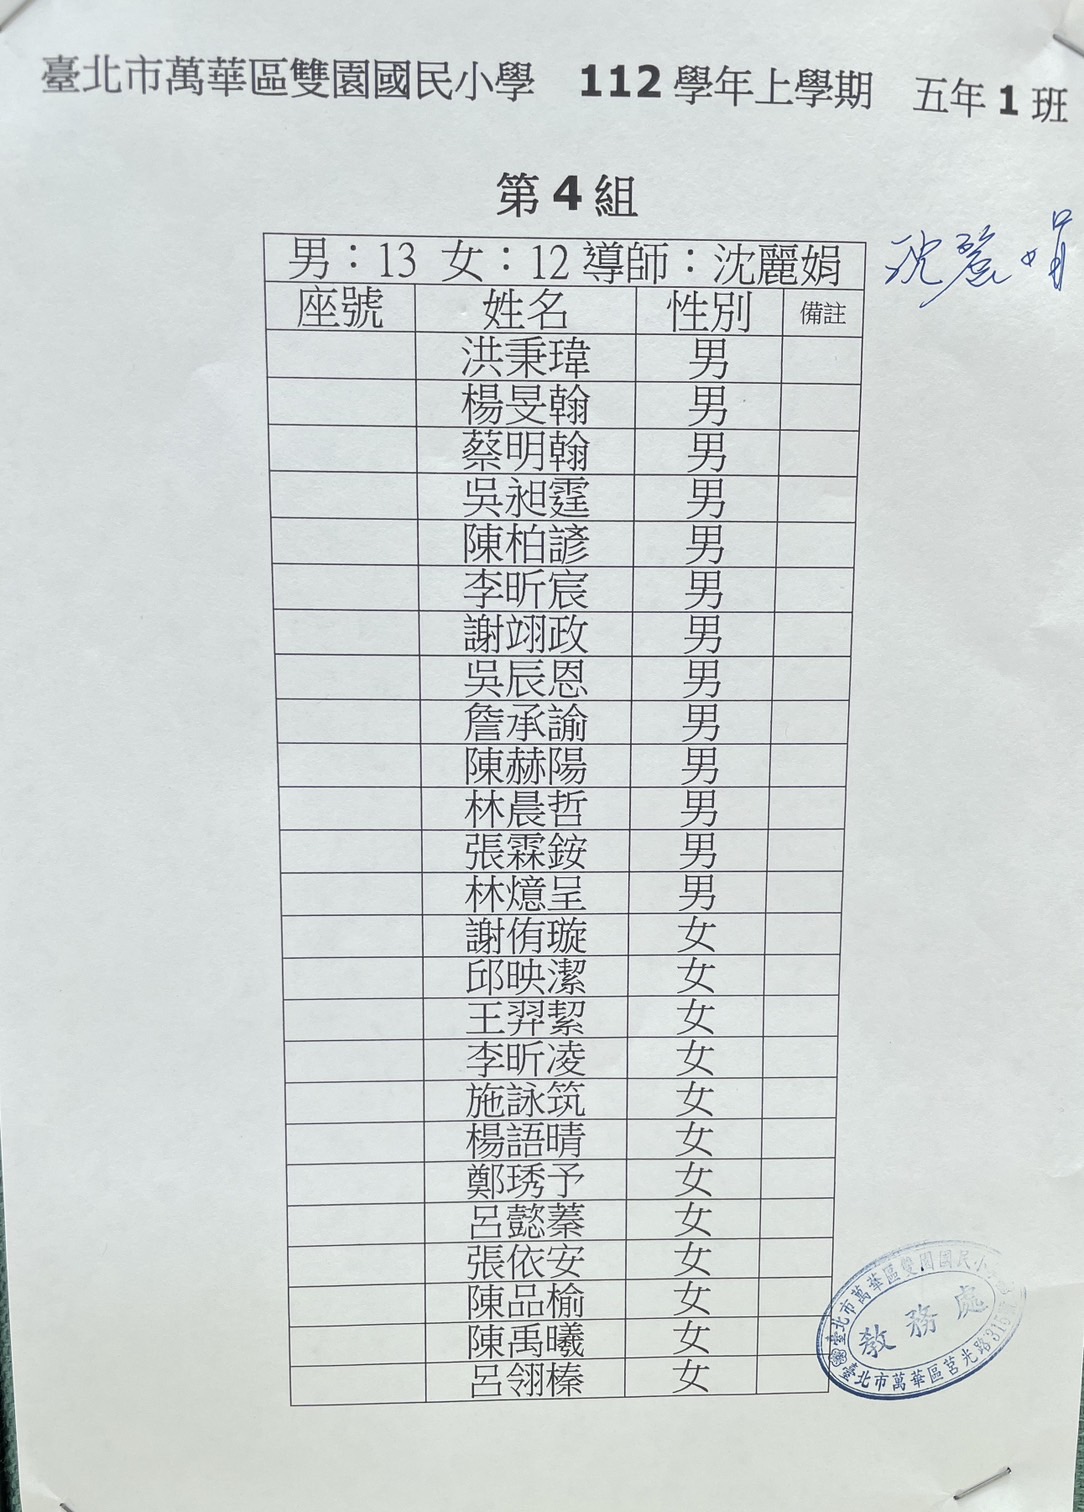 臺北市萬華區雙園國民小學 112 學年上學期 五年 1 班
第 4 組
男：13 女：12 導師：沈麗娟
沈麗娟
座號 姓名 性別 備註
洪秉瑋 男
楊旻翰 男
蔡明翰 男
吳昶霆 男
陳柏諺 男
李昕宸 男
謝翊政 男
吳辰恩 男
詹承諭 男
陳赫陽 男
林晨哲 男
張霖銨 男
林燱呈 男
謝侑璇 女
邱映潔 女
王羿絜 女
李昕凌 女
施詠筑 女
楊語晴 女
鄭琇予 女
呂懿蓁 女
張依安 女
陳品榆 女
陳禹曦 女
呂翎榛 女
臺北市萬華區雙園國民小
教務處
臺北市萬華區莒光路315